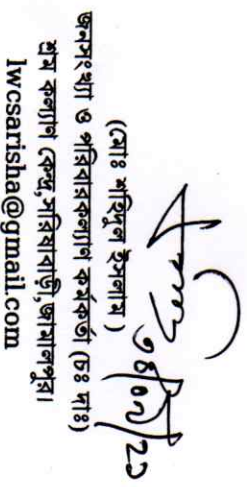 (মোঃ শহিদুল ইসলাম)
জনসংখ্যা ও পরিবারকল্যাণ কর্মকর্তা (চঃ দাঃ)
শ্রম কল্যাণ কেন্দ্র,সরিষাবাড়ী,জামালপুর।
lwcsarisha@gmail.com